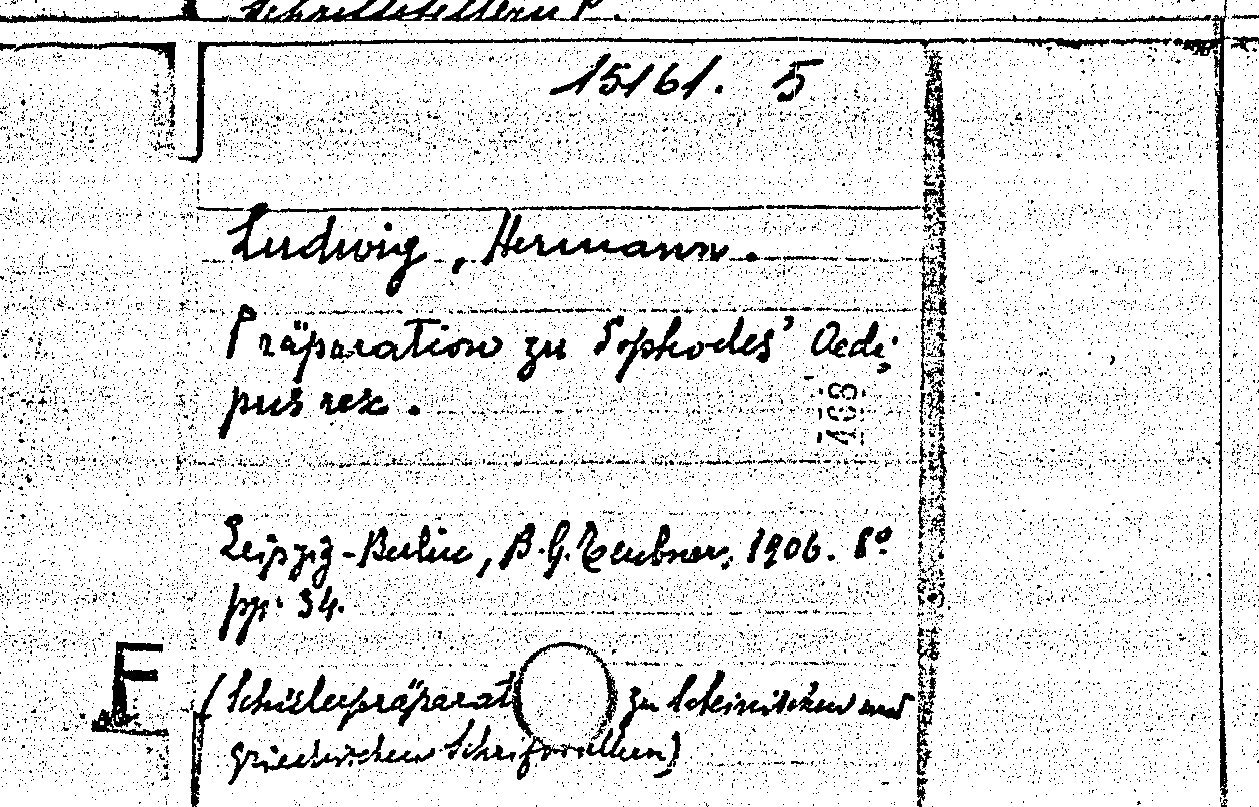 Schriftstellern F.
15161. 5
Ludwig, Hermann.
Präparation zu Sophocles' Oedi-
pus rex.
468
Leipzig-Berlin, B.G. Teubner, 1906. 8°
pp. 34.
F
(Schülerpräparat zu lateinischen und
griechischen Schrifstellern)